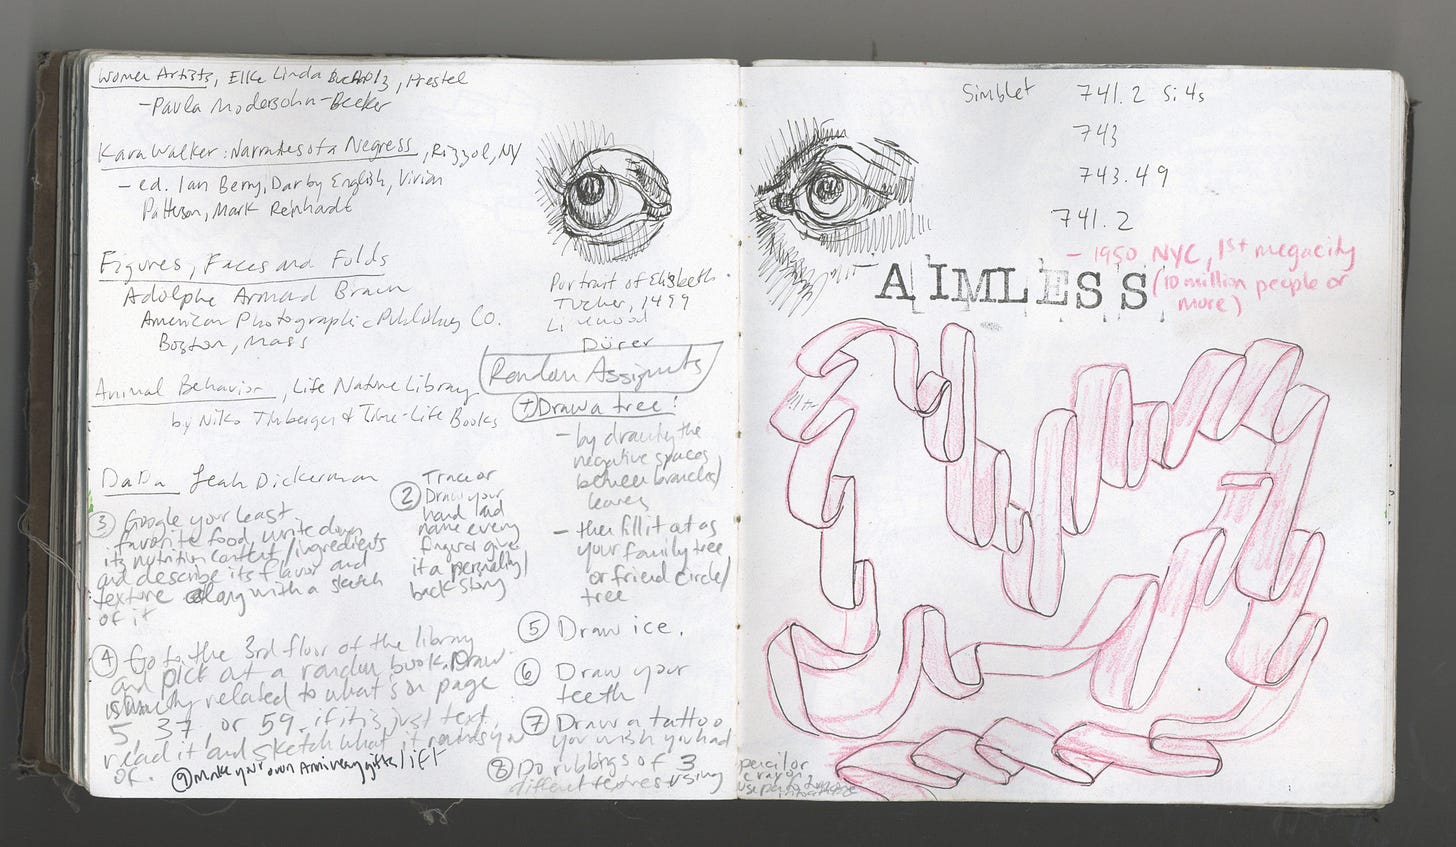 Women Artists, Elke Linda Buchholz, Prestel
- Paula Modersohn-Becker
Kara Walker: Narratives of a Negress, Rizzoli, NY
- ed. Ian Berry, Darby English, Vivian
Patterson, Mark Reinhardt
Figures, Faces and Folds
Adolphe Armand Braun
American Photographic Publishing Co.
Boston, Mass
Animal Behavior, Life Nature Library
by Niko Tinbergen & Time-Life Books
DaDa Leah Dickerman
③ Google your least
favorite food, write down
its nutrition content/ingredients
and describe its flavor and
texture along with a sketch
of it
④ Go to the 3rd floor of the library
and pick out a random book. Draw
related to what's on page
5, 37, or 59, if it is just text,
read it and sketch what it reminds you
of.
⑨ Make your own
Portrait of Elsbeth
Tucher, 1499
Dürer
Random Assignments
① Draw a tree:
- by drawing the
negative spaces
between branches/
leaves
- then fill it out as
your family tree
or friend circle/
tree
② Trace or
Draw your
hand and
name every
finger give
it a personality/
back story
⑤ Draw ice.
⑥ Draw your
teeth
⑦ Draw a tattoo
you wish you had
⑧ Do rubbings of 3
different textures using
pencil or
crayon
Simblet 741.2 Si4s
743
743.49
741.2
- 1950 NYC, 1st megacity
(10 million people or
more)
AIMLESS